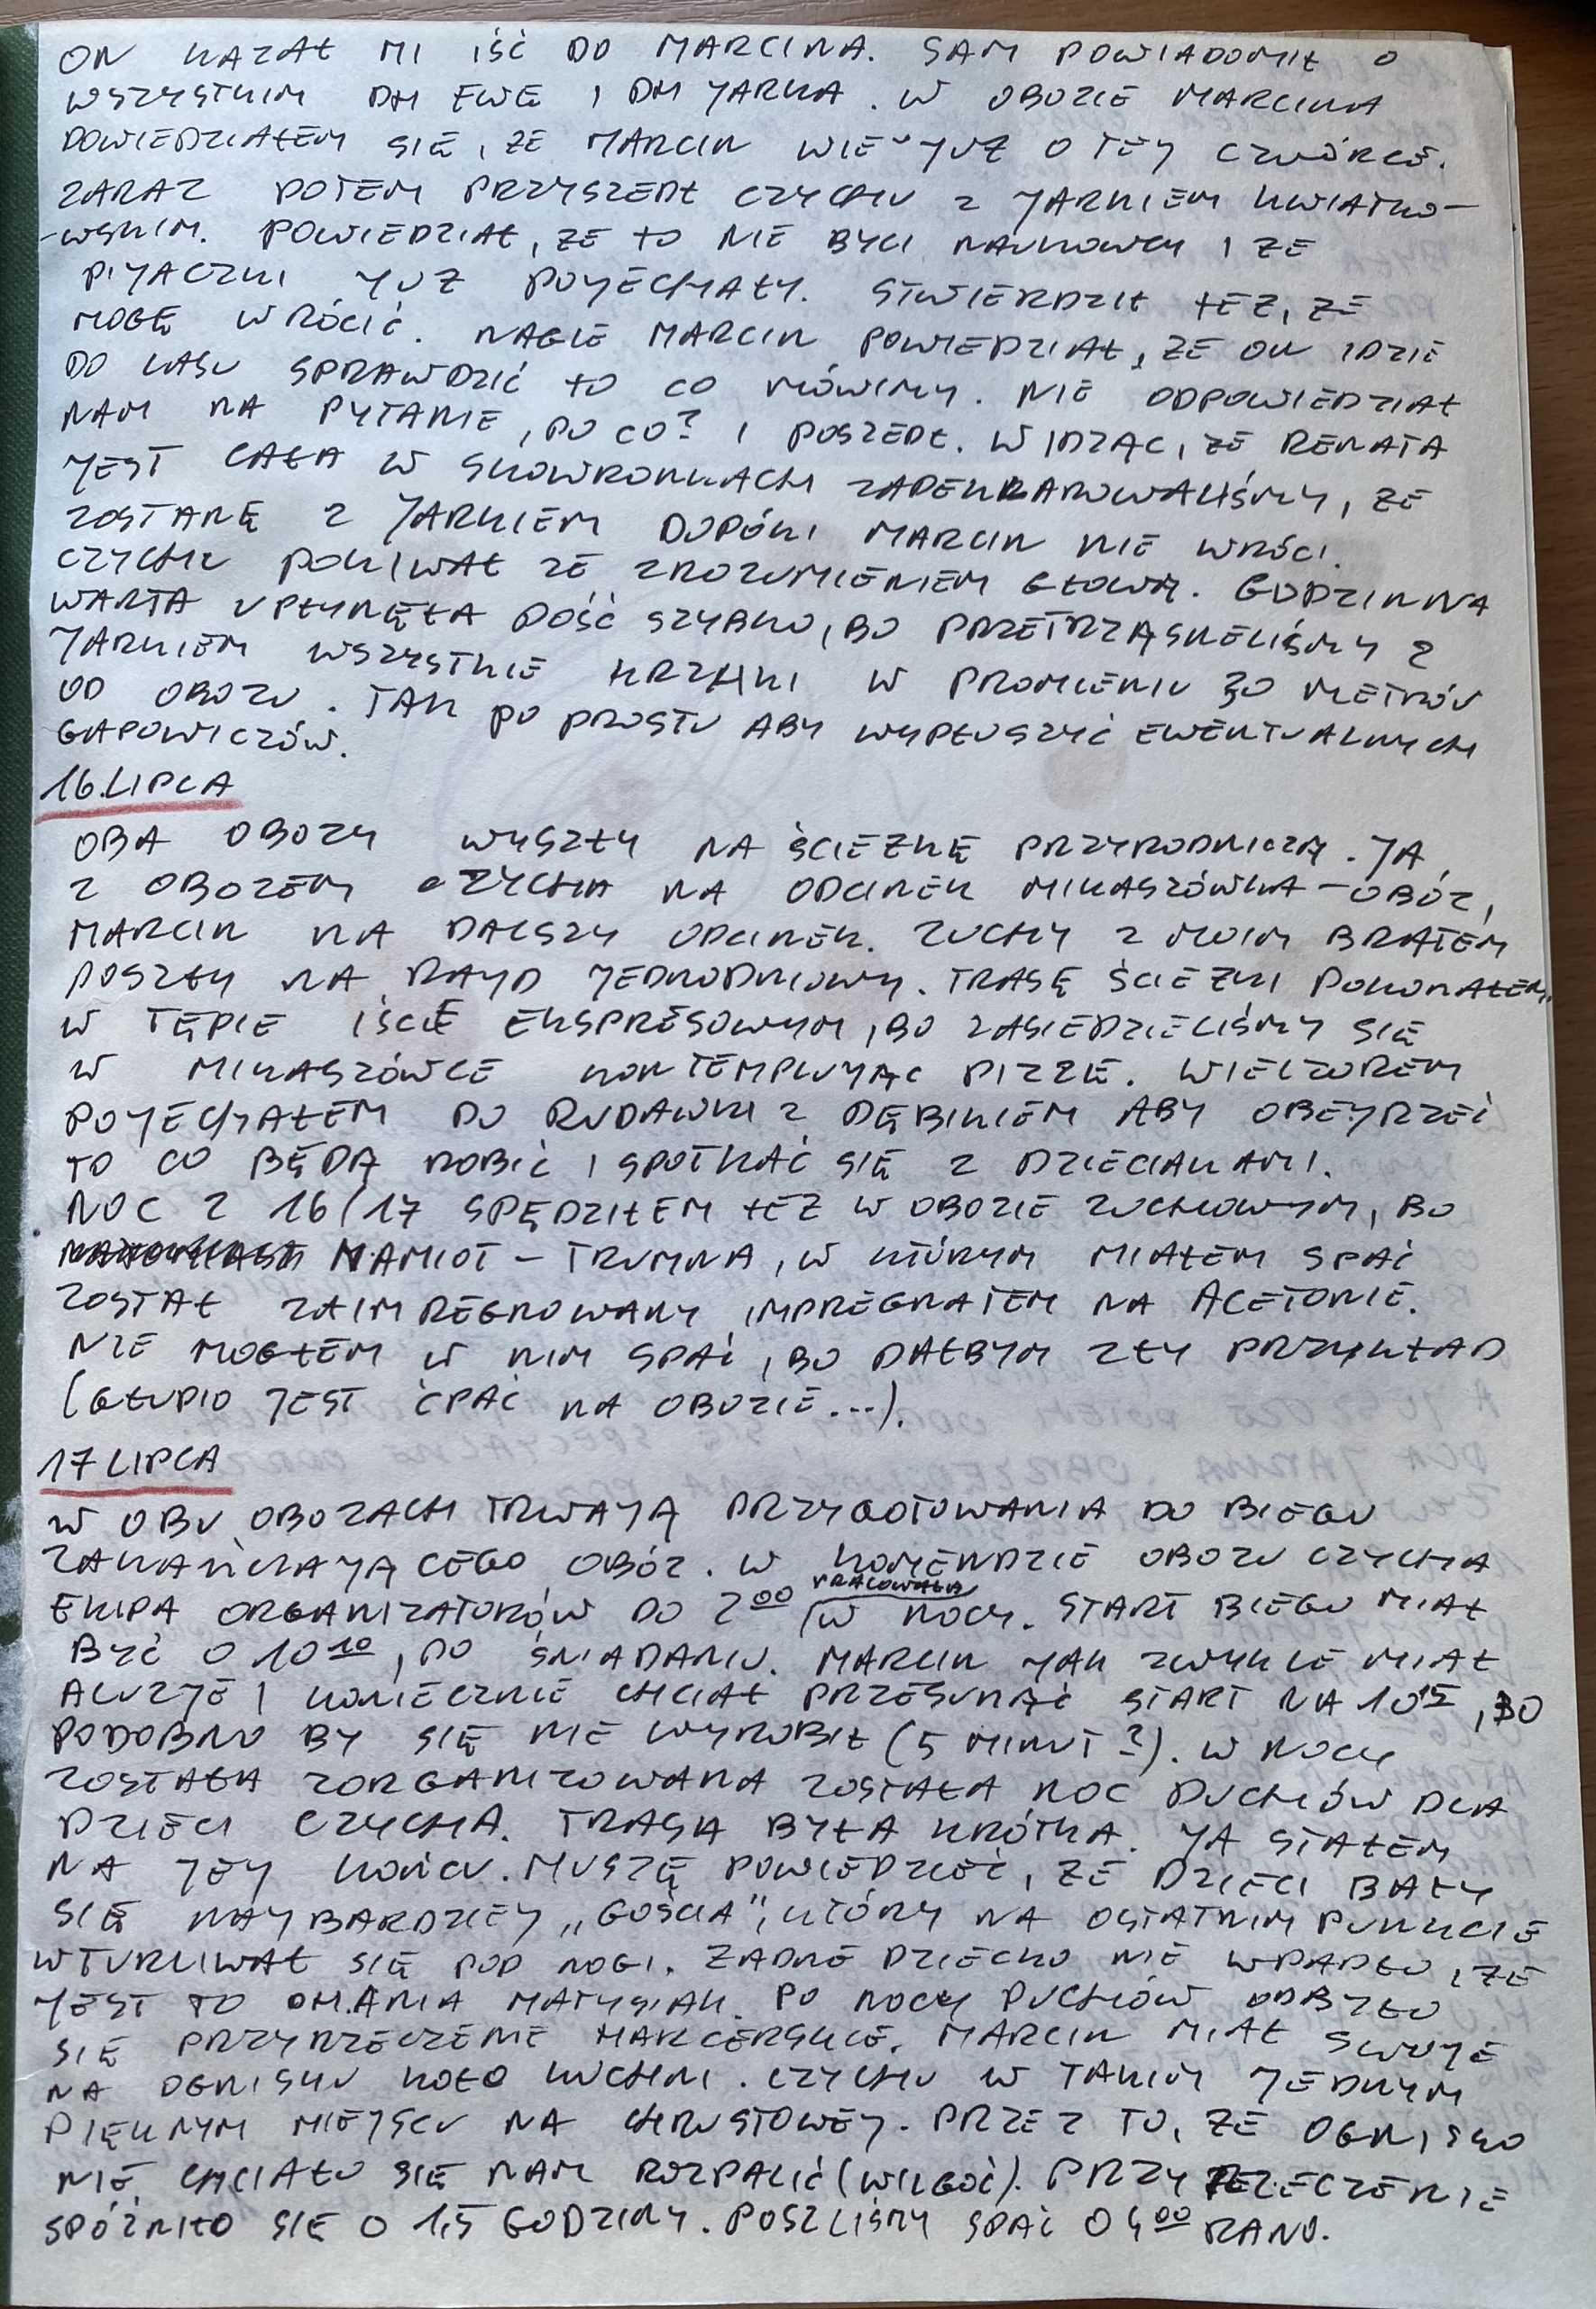 ON KAZAŁ MI IŚĆ DO MARCINA. SAM POWIADOMIŁ O
WSZYSTKIM DH EWĘ I DH JARKA. W OBOZIE MARCINA
DOWIEDZIAŁEM SIĘ, ŻE MARCIN WIE JUŻ O TEJ CZWÓRCE.
ZARAZ POTEM PRZYSZEDŁ CZYCHU Z JARKIEM KWIATKO-
-WSKIM. POWIEDZIAŁ, ŻE TO NIE BYLI NAUKOWCY I ŻE
PIJACZKI JUŻ POJECHAŁY. STWIERDZIŁ TEŻ, ŻE
MOGĘ WRÓCIĆ. NAGLE MARCIN POWIEDZIAŁ, ŻE ON IDZIE
DO LASU SPRAWDZIĆ TO CO MÓWIMY. NIE ODPOWIEDZIAŁ
NAM NA PYTANIE, PO CO? I POSZEDŁ. WIDZĄC, ŻE RENATA
JEST CAŁA W SKOWRONKACH ZADEKLAROWALIŚMY, ŻE
ZOSTANĘ Z JARKIEM DOPÓKI MARCIN NIE WRÓCI.
CZYCHU POKIWAŁ ZE ZROZUMIENIEM GŁOWĄ. GODZINNA
WARTA UPŁYNĘŁA DOŚĆ SZYBKO, BO PRZETRZĄSNELIŚMY Z
JARKIEM WSZYSTKIE KRZAKI W PROMIENIU 30 METRÓW
OD OBOZU. TAK PO PROSTU ABY WYPŁOSZYĆ EWENTUALNYCH
GAPOWICZÓW.
16.LIPCA
OBA OBOZY WYSZŁY NA ŚCIEŻKĘ PRZYRODNICZĄ. JA
Z OBOZEM CZYCHA NA ODCINEK MIKASZÓWKA – OBÓZ,
MARCIN NA DALSZY ODCINEK. ZUCHY Z MOIM BRATEM
POSZŁY NA RAJD JEDNODNIOWY. TRASĘ ŚCIEŻKI POKONAŁEM
W TĘPIE IŚCIE EKSPRESOWYM, BO ZASIEDZIELIŚMY SIĘ
W MIKASZÓWCE KONTEMPLUJĄC PIZZĘ. WIECZOREM
POJECHAŁEM DO RUDAWKI Z DĘBINIEM ABY OBEJRZEĆ
TO CO BĘDĄ ROBIĆ I SPOTKAĆ SIĘ Z DZIECIAKAMI.
NOC Z 16/17 SPĘDZIŁEM TEŻ W OBOZIE ZUCHOWYM, BO
NAMIOT – TRUMNA, W KTÓRYM MIAŁEM SPAĆ
ZOSTAŁ ZAIMPREGNOWANY IMPREGNATEM NA ACETONIE.
NIE MOGŁEM W NIM SPAĆ, BO DAŁBYM ZŁY PRZYKŁAD
(GŁUPIO JEST ĆPAĆ NA OBOZIE...).
17 LIPCA
W OBU OBOZACH TRWAJĄ PRZYGOTOWANIA DO BIEGU
ZAKAŃCZAJĄCEGO OBÓZ. W KOMENDZIE OBOZU CZYCHA
EKIPA ORGANIZATORÓW DO 2⁰⁰ PRACOWAŁA W NOCY. START BIEGU MIAŁ
BYĆ O 10¹⁰, PO ŚNIADANIU. MARCIN JAK ZWYKLE MIAŁ
ALUZJE I KONIECZNIE CHCIAŁ PRZESUNĄĆ START NA 10¹⁵, BO
PODOBNO BY SIĘ NIE WYROBIŁ (5 MINUT?). W NOCY
ZOSTAŁA ZORGANIZOWANA ZOSTAŁA NOC DUCHÓW DLA
DZIECI CZYCHA. TRASA BYŁA KRÓTKA. JA STAŁEM
NA JEJ KOŃCU. MUSZĘ POWIEDZIEĆ, ŻE DZIECI BAŁY
SIĘ NAJBARDZIEJ „GOŚCIA", KTÓRY NA OSTATNIM PUNKCIE
WTURLIWAŁ SIĘ POD NOGI. ŻADNE DZIECKO NIE WPADŁO, ŻE
JEST TO DH. ANIA MATYSIAK. PO NOCY DUCHÓW ODBYŁO
SIĘ PRZYRZECZENIE HARCERSKIE. MARCIN MIAŁ SWOJE
NA OGNISKU KOŁO KUCHNI. CZYCHU W TAKIM JEDNYM
PIĘKNYM MIEJSCU NA CHRUSTOWEJ. PRZEZ TO, ŻE OGNISKO
NIE CHCIAŁO SIĘ NAM ROZPALIĆ (WILGOĆ). PRZYRZECZENIE
SPÓŹNIŁO SIĘ O 1,5 GODZINY. POSZLIŚMY SPAĆ O 4⁰⁰ RANO.